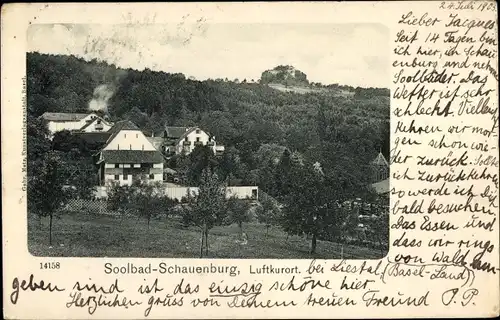 24. Juli 1903
Lieber Jacques
Seit 14 Tagen bin
ich hier, in Schau
enburg und neh
Soolbäder. Das
Wetter ist sehr
schlecht. Vielleicht
kehren wir mor
gen schon wie
der zurück. Sollte
ich zurückkehren
so werde ich Dich
bald besuchen
Das Essen und
dass wir rings
von Wald um
geben sind ist das einzig schöne hier.
Herzlichen Gruss von Deinem treuen Freund P. P.
14158
Soolbad-Schauenburg, Luftkurort. bei Liestal (Basel-Land)
Gebr. Metz, Kunstverlagsanstalt, Basel.